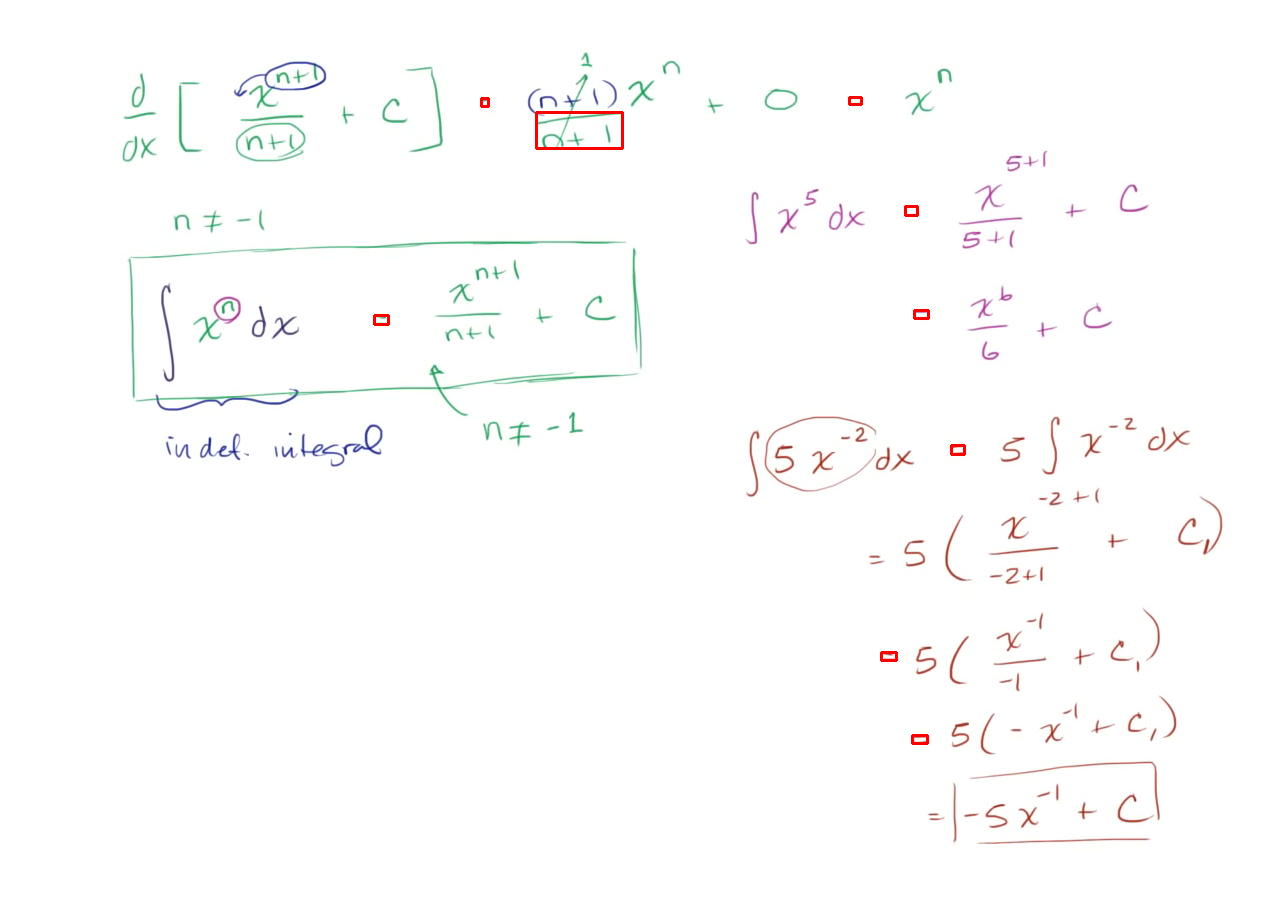 d/dx [ x^(n+1)/(n+1) + C ] = (n+1)/(n+1) x^n + 0 = x^n
1
n ≠ -1
∫ x^n dx = x^(n+1)/(n+1) + C
n ≠ -1
indef. integral
∫ x^5 dx = x^(5+1)/(5+1) + C
= x^6/6 + C
∫ 5x^-2 dx = 5 ∫ x^-2 dx
= 5 ( x^(-2+1)/(-2+1) + C₁)
= 5 ( x^-1/-1 + C₁)
= 5 ( - x^-1 + C₁)
= -5x^-1 + C